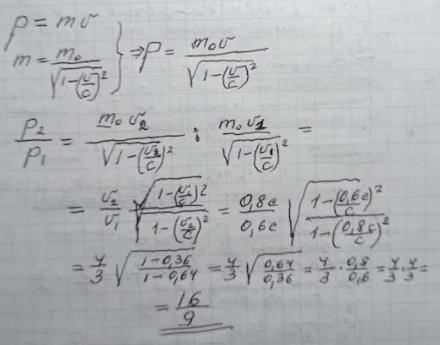 p = mv
m = m₀/√(1-(v/c)²) } ⇒ p = m₀v/√(1-(v/c)²)
p₂/p₁ = m₀v₂/√(1-(v₂/c)²) : m₀v₁/√(1-(v₁/c)²) =
= v₂/v₁ √((1-(v₁/c)²)/(1-(v₂/c)²)) = 0,8c/0,6c √((1-(0,6c/c)²)/(1-(0,8c/c)²))
= 4/3 √((1-0,36)/(1-0,64)) = 4/3 √(0,64/0,36) = 4/3 · 0,8/0,6 = 4/3 · 4/3 =
= 16/9